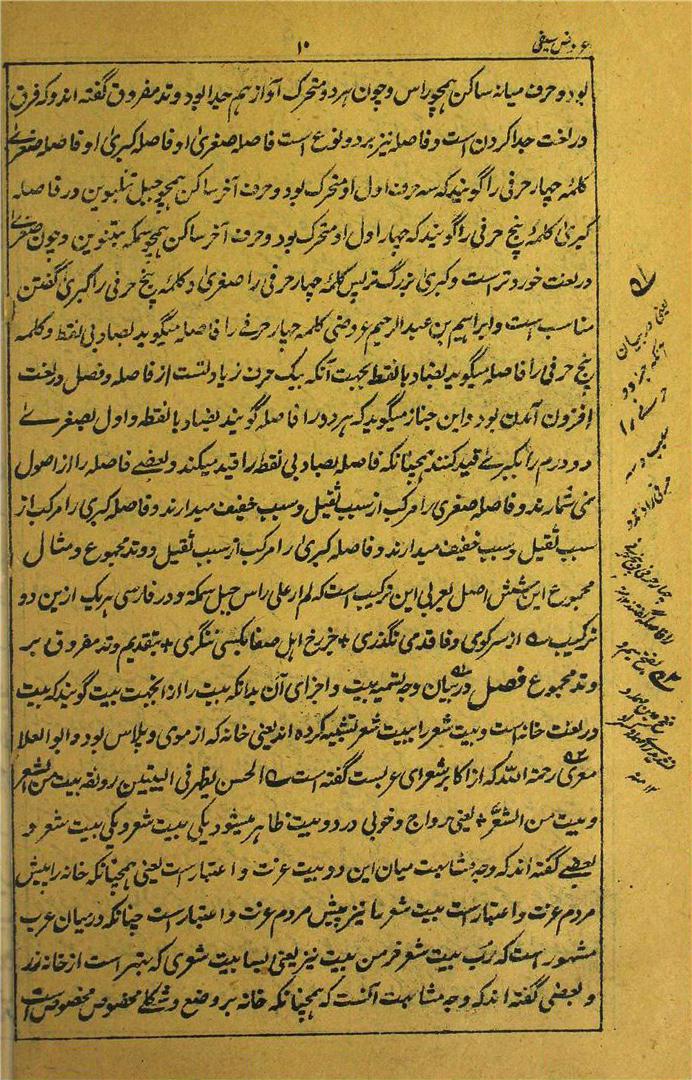 عروض سیفی
۱۰
بود و حرف میانه ساکن همچو راس و چون هر دو متحرک آواز هم جدا بود وتد مفروق گفته اند و که فرق
در لغت جدا کردن است و فاصله نیز بر دو نوع است فاصله صغریٰ او فاصله کبریٰ او فاصله صغریٰ
کلمۀ چهار حرفی را گویند که سه حرف اول او متحرک بود و حرف آخر ساکن همچو جبل بتنوین و در فاصله
کبریٰ کلمۀ پنج حرفی را گویند که چهار اول او متحرک بود و حرف آخر ساکن همچو سمکة بتنوین و چون صغریٰ
در لغت خورد تر است و کبریٰ بزرگ تر پس کلمۀ چهار حرفی را صغریٰ و کلمۀ پنج حرفی را کبریٰ گفتن
مناسب است و ابراهیم بن عبد الرحیم عروضی کلمه چهار حرفی را فاصله میگوید بصاد بی نقط و کلمه
پنج حرفی را فاضله میگوید بضاد با نقط بجهت آنکه بیک حرف زیادتست از فاصله و فضل در لغت
افزون آمدن بود و این جناز میگوید که هر دو را فاضله گویند بضاد با نقط و اول بصغریٰ
و دوم را بکبریٰ قید کنند همچنانکه فاصله بصاد بی نقط را قید میکنند و بعضے فاصله را از اصول
نمی شمارند و فاصله صغری را مرکب از سبب ثقیل و سبب خفیف میدارند و فاصله کبری را مرکب از
سبب ثقیل و سبب خفیف میدارند و فاصله کبریٰ را مرکب از سبب ثقیل و وتد مجموع و مثال
مجموع این شش اصل بعربی این ترکیب است که لم ار علی راس جبل سمکة و در فارسی هر یک ازین دو
ترکیب از سر کوی وفا قدمی نگذری + جز رخ اهل صفا بکسی ننگری + بتقدیم وتد مفروق بر
وتد مجموع فصل در بیان وجه تسمیه بیت و اجزای آن بدانکه بیت را از انجهت بیت گویند که بیت
در لغت خانه است و بیت شعر را ببیت شعر تشبیه کرده اند یعنی خانه که از موی و پلاس بود و ابو العلا
معری رحمة الله که از اکابر شعرای عربست گفته است الحسن یظهر فی البیتین رونقه بیت من الشعر
و بیت من الشَعر + یعنی رواج و خوبی در دو بیت ظاهر میشود یکی بیت شعر و یکی بیت شعر و
بعضے گفته اند که وجه مشابهت میان این دو بیت عزت و اعتبار است یعنی همچنانکه خانه را پیش
مردم عزت و اعتبار است بیت شعر را نیز پیش مردم عزت و اعتبار است چنانکه در میان عرب
مشهور است که رب بیت شعر خر من بیت تبر یعنی بسا بیت شعری که بهتر است از خانه زر
و بعضی گفته اند که وجه مشابهت آنست که همچنانکه خانه بر وضع و شکلے مخصوص مخصوص است
یعنی در بیان
آنکه جزو دو
حرفی را
سبب و سه
حرفی را وتد و